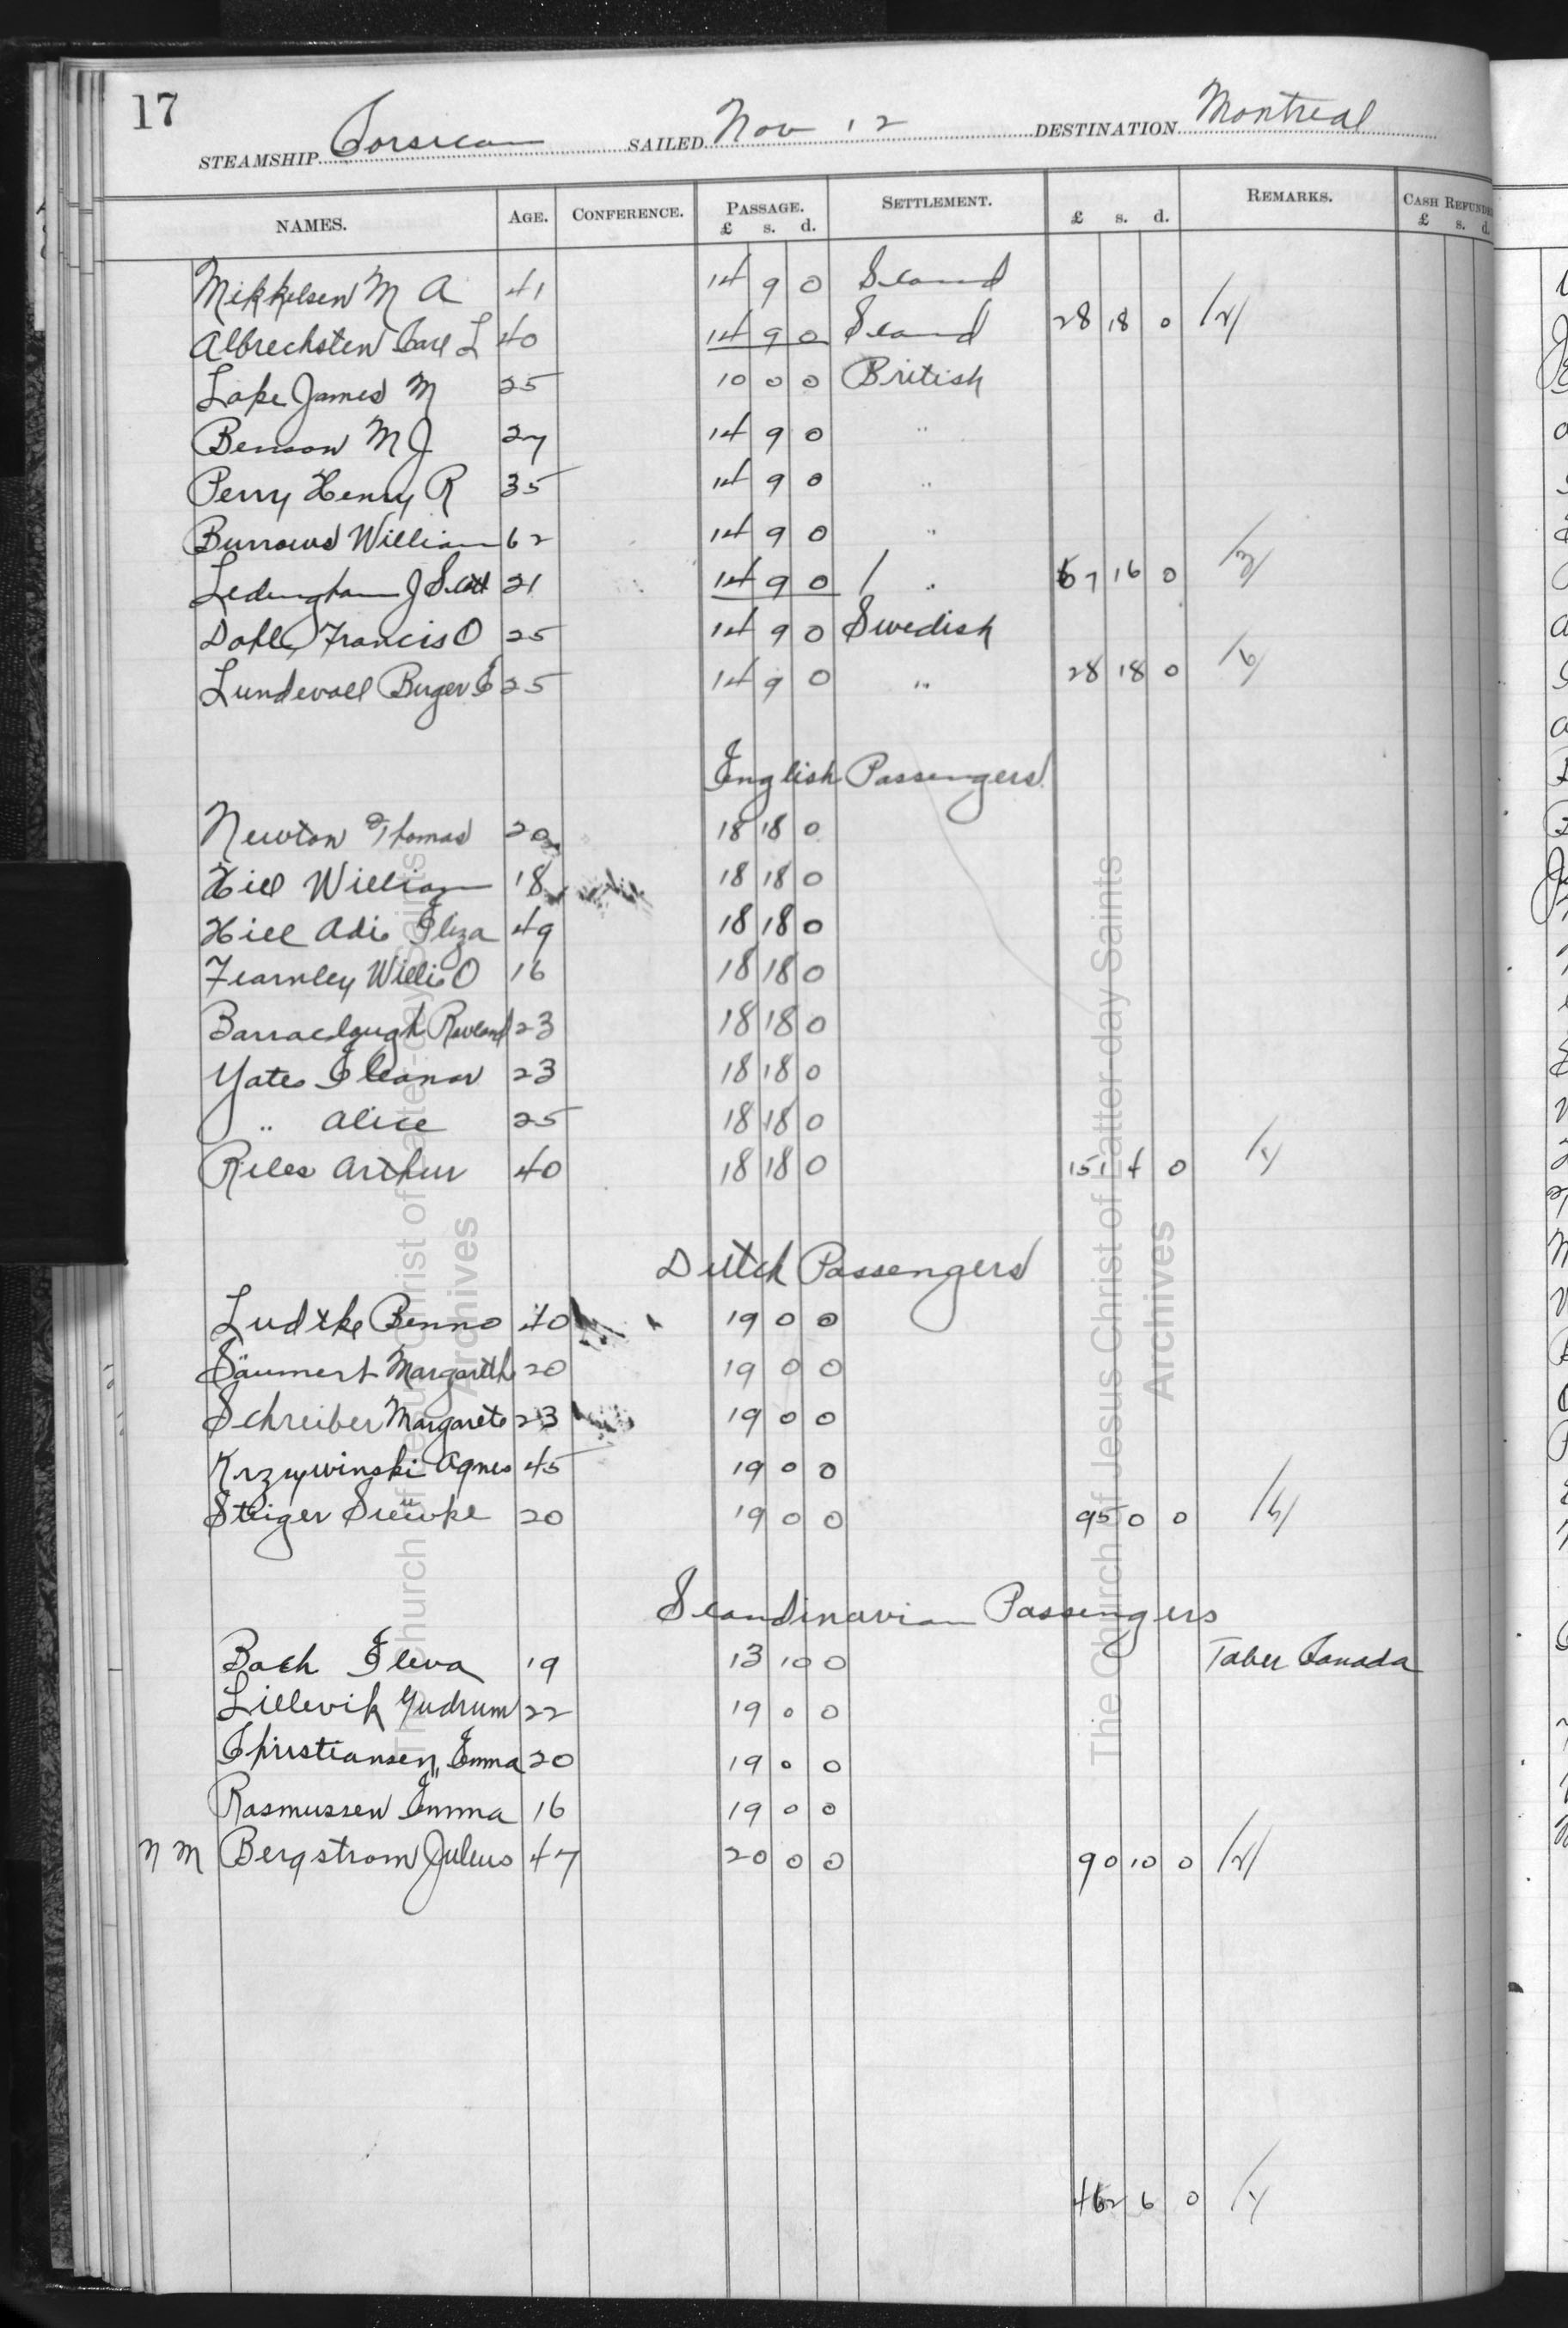 17
STEAMSHIP Corsican SAILED Nov 12 DESTINATION Montreal
NAMES. AGE. CONFERENCE. PASSAGE. £ s. d. SETTLEMENT. £ s. d. REMARKS. CASH REFUNDE £ s. d.
Mikkelsen M A 41 14 9 0 Scand
Albrechsten Carl L 40 14 9 0 Scand 28 18 0
Lake James M 25 10 0 0 British
Benson M J 27 14 9 0 "
Perry Henry R 35 14 9 0 "
Burrows William 62 14 9 0 "
Ledingham J Scott 21 14 9 0 " 67 16 0
Dahle Francis O 25 14 9 0 Swedish
Lundevall Birger E 25 14 9 0 " 28 18 0
English Passengers
Newton Thomas 20 18 18 0
Hill William 18 18 18 0
Hill Adi Eliza 49 18 18 0
Fearnley Willis O 16 18 18 0
Barraclough Rowland 23 18 18 0
Yates Eleanor 23 18 18 0
" Alice 25 18 18 0
Riles Arthur 40 18 18 0 151 4 0
Dutch Passengers
Ludtke Benno 40 19 0 0
Säumert Margareth 20 19 0 0
Schreiber Margarete 23 19 0 0
Krzywinski Agnes 45 19 0 0
Steiger 20 19 0 0 95 0 0
Scandinavian Passengers
Bach Eleva 19 13 10 0 Taber Canada
Lillevik Gudrum 22 19 0 0
Christiansen Emma 20 19 0 0
Rasmussen Emma 16 19 0 0
N M Bergstrom Julius 47 20 0 0 90 10 0
462 6 0
The Church of Jesus Christ of Latter-day Saints
Archives
The Church of Jesus Christ of Latter-day Saints
Archives